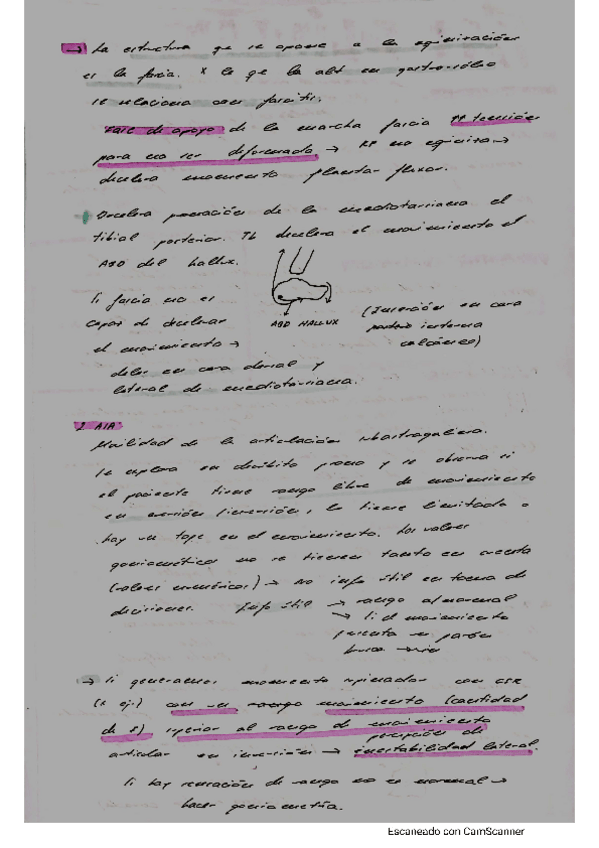 → La estructura que se opone a la equinización
es la fascia. x lo q la alt en gastro-sóleo
se relaciona con fascitis.
Fase de apoyo de la marcha fascia ↑↑ tensión
para no ser deformada → RF no equiniza →
decelera momento plantar flexor.
Decelera pronación de la mediotarsiana el
tibial posterior. Tb decelera el movimiento el
ABD del hallux.
Si fascia no es
capaz de decelerar
el movimiento →
ABD HALLUX
(Inserción en cara
interna
calcáneo)
dolor en cara dorsal y
lateral de mediotarsiana.
2. AIA:
Movilidad de la articulación subastragalina.
Se explora en decúbito prono y se observa si
el paciente tiene rango libre de movimiento
en eversión / inversión, lo tiene limitado o
hay un tope en el movimiento. Los valores
goniométricos no se tienen tanto en cuenta
(valores numéricos) → No info útil en toma de
decisiones. Info útil → rango anormal
→ Si el movimiento
presenta un
→ Si generamos momento supinador con
(x ej.) con un rango movimiento (cantidad
de x) superior al rango de movimiento
articular en inversión → percepción de inestabilidad lateral.
Si hay rango no es normal →
hacer goniometría.
Escaneado con CamScanner